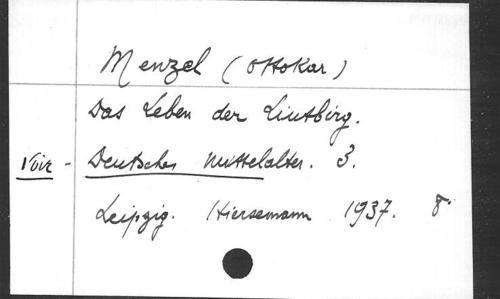 Menzel (Ottokar)
Das Leben der Liutbirg.
Voir - Deutsches Mittelalter. 3.
Leipzig. Hiersemann 1937. 8°